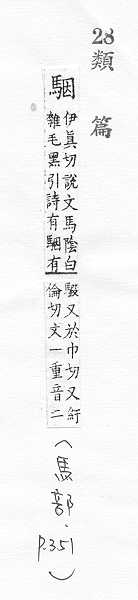 28 類篇
駰
伊眞切說文馬陰白
雜毛黑引詩有駰有
騢又於巾切又紆
倫切文一重音二
(馬部, p.351)